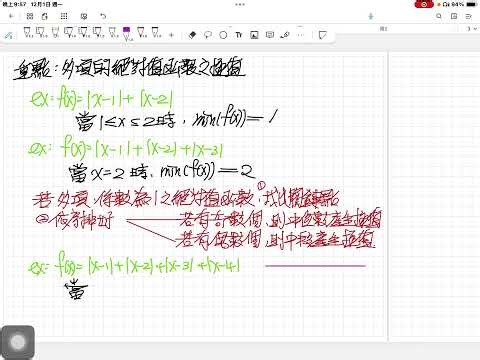 晚上9:57 12月1日 週一
84%
重點:多項的絕對值函數之極值
ex: f(x)=|x-1|+|x-2|
當1≤x≤2時, min(f(x))=1
ex: f(x)=|x-1|+|x-2|+|x-3|
當x=2時, min(f(x))=2
若多項,係數為1之絕對值函數,①找
②依序排好 若有奇數個,則中位數產生極值
若有偶數個,則中段產生極值
ex: f(x)=|x-1|+|x-2|+|x-3|+|x-4|
當